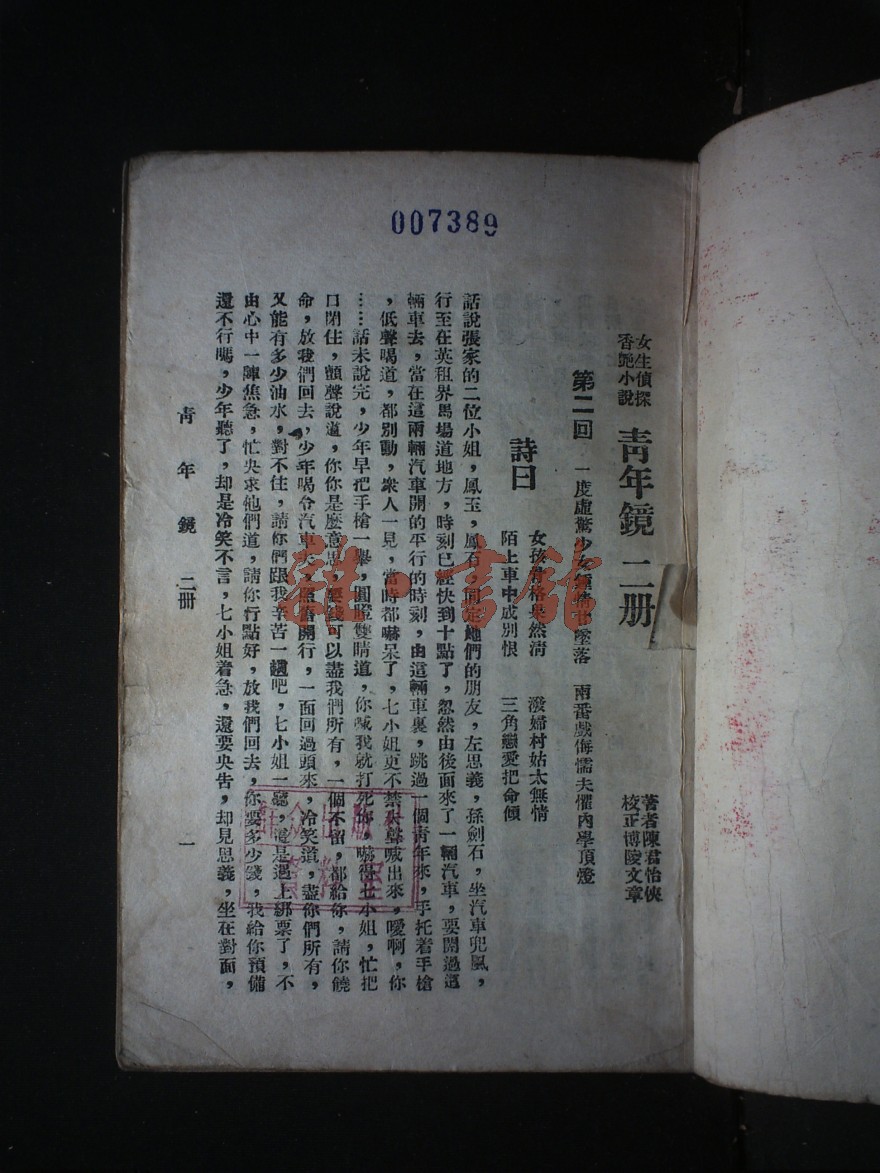 007389
女生偵探
香艷小說
青年鏡 二册
著者陳君怡俠
校正博陵文章
第二回 一度虛驚少女無情 墜落 兩番戲侮懦夫懼內學頂燈
詩曰
女孩骨格果然清 潑婦村姑太無情
陌上車中成別恨 三角戀愛把命傾
話說張家的二位小姐，鳳玉，鳳石，同定她們的朋友，左思義，孫劍石，坐汽車兜風，
行至在英租界馬場道地方，時刻已經快到十點了，忽然由後面來了一輛汽車，要開過這
輛車去，當在這兩輛汽車開的平行的時刻，由這輛車裏，跳過一個青年來，手托着手槍
，低聲喝道，都別動，衆人一見，當時都嚇呆了，七小姐更不禁失聲喊出來，噯啊，你
……話未說完，少年早把手槍一舉，圓瞪雙睛道，你喊我就打死你，嚇得七小姐，忙把
口閉住，顫聲說道，你你是麽意思，要錢可以盡我們所有，一個不留，都給你，請你饒
命，放我們回去，少年喝令汽車夫，照舊開行，一面回過頭來，冷笑道，盡你們所有，
又能有多少油水，對不住，請你們跟我辛苦一趟吧，七小姐一聽，這是遇上綁票了，不
由心中一陣焦急，忙央求他們道，請你行點好，放我們回去，你要多少錢，我給你預備
還不行嗎，少年聽了，却是冷笑不言，七小姐着急，還要央告，却見思義，坐在對面，
青年鏡 二册 一